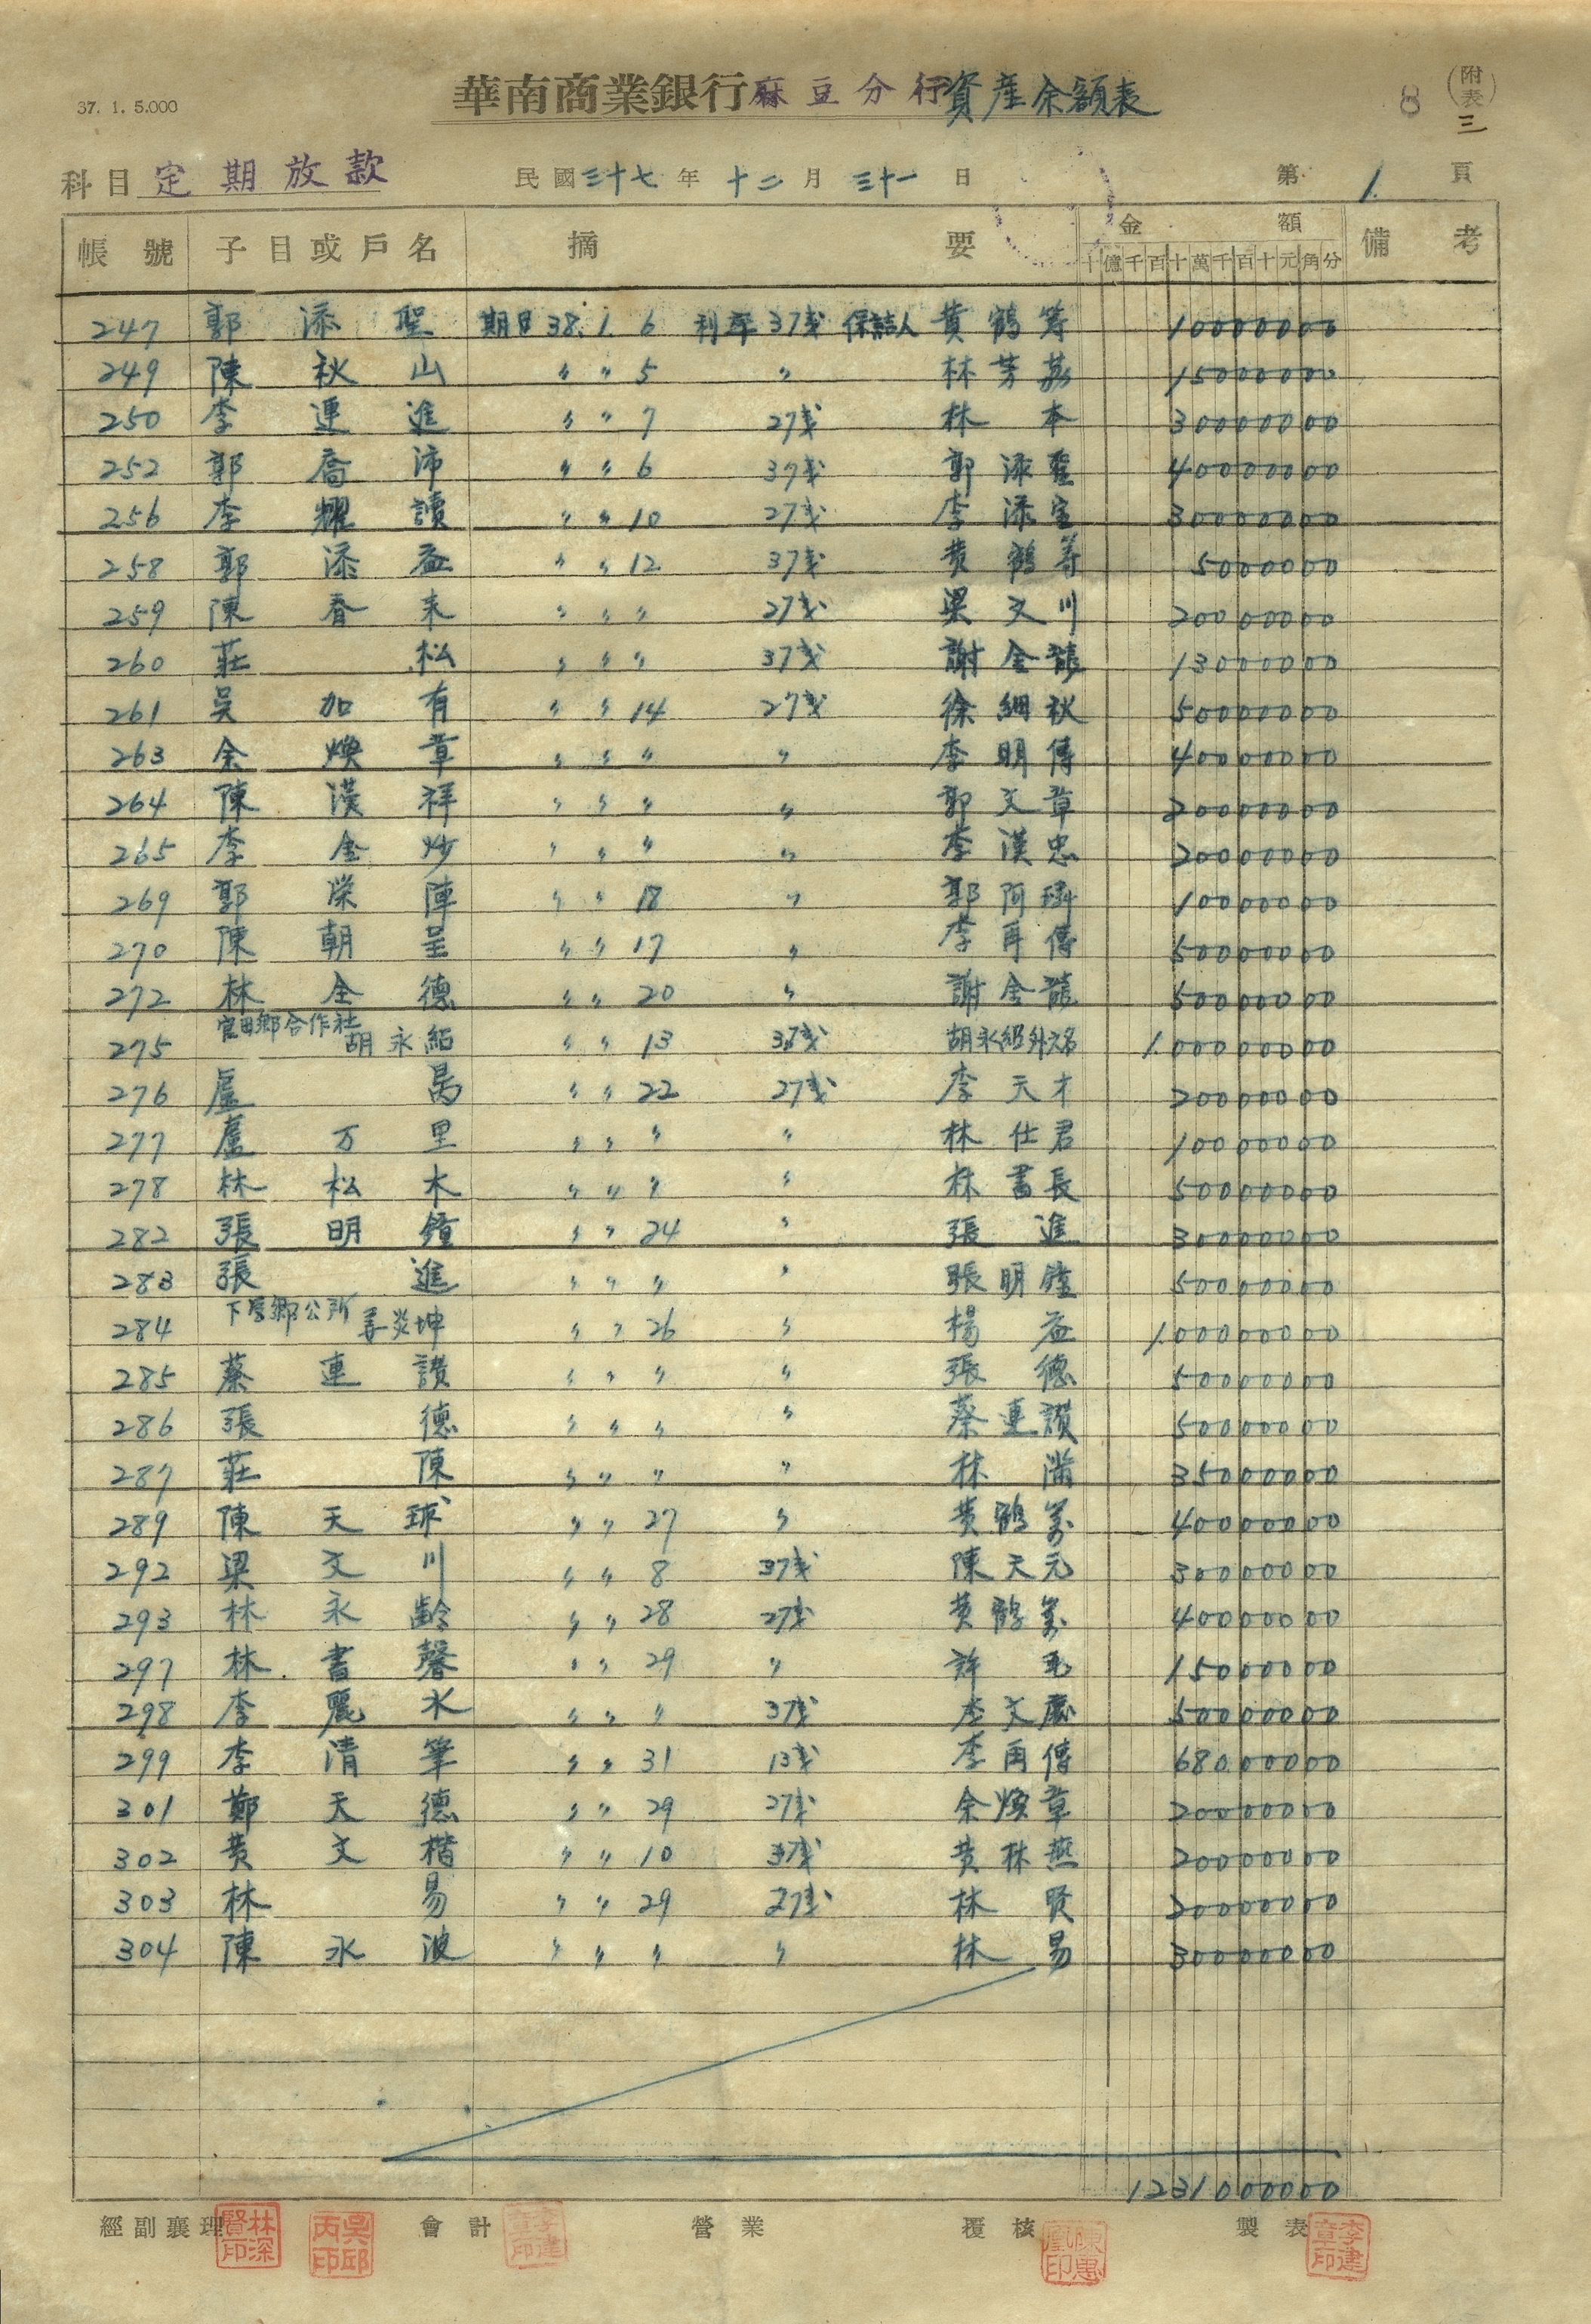 37. 1. 5.000
華南商業銀行麻豆分行資產余額表
8
(附表三)
科目 定期放款 民國三十七年十二月三十一日 第1.頁
帳號 子目或戶名 摘要 金額 備考
十億千百十萬千百十元角分
247 郭添聖 期日38.1.6 利率37戋 保結人 黃鶴筹 10000000
249 陳秋山 〃〃5 〃 林芳 15000000
250 李連進 〃〃7 27戋 林本 30000000
252 郭喬沛 〃〃6 37戋 郭添聖 40000000
256 李耀讀 〃〃10 27戋 李添宝 30000000
258 郭添益 〃〃12 37戋 黃鶴筹 5000000
259 陳春來 〃〃〃 27戋 梁文川 20000000
260 莊松 〃〃〃 37戋 謝金龍 13000000
261 吳加有 〃〃14 27戋 徐細秋 50000000
263 余煥章 〃〃〃 〃 李明傳 40000000
264 陳漢祥 〃〃〃 〃 郭文章 20000000
265 李金炒 〃〃〃 〃 李漢忠 20000000
269 郭榮陣 〃〃18 〃 郭阿 10000000
270 陳朝呈 〃〃17 〃 李再傳 50000000
272 林全德 〃〃20 〃 謝金龍 50000000
275 官田鄉合作社 胡永紹 〃〃13 37戋 胡永紹外六名 1.00000000
276 盧萬 〃〃22 27戋 李天才 20000000
277 盧万里 〃〃〃 〃 林仕君 10000000
278 林松木 〃〃〃 〃 林書長 50000000
282 張明鐘 〃〃24 〃 張進 30000000
283 張進 〃〃〃 〃 張明鐘 50000000
284 下营鄉公所 姜炎坤 〃〃26 〃 楊益 1.00000000
285 蔡連讃 〃〃〃 〃 張德 50000000
286 張德 〃〃〃 〃 蔡連讃 50000000
287 莊陳 〃〃〃 〃 林滿 35000000
289 陳天球 〃〃27 〃 黃鶴筹 40000000
292 梁文川 〃〃8 37戋 陳天元 30000000
293 林永齡 〃〃28 27戋 黃鶴筹 40000000
297 林書馨 〃〃29 〃 許毛 15000000
298 李麗水 〃〃〃 37戋 李文 50000000
299 李清筆 〃〃31 13戋 李再傳 68000000
301 鄭天德 〃〃29 27戋 余煥章 20000000
302 黃文楷 〃〃10 37戋 黃林燕 20000000
303 林易 〃〃29 27戋 林賢 20000000
304 陳永波 〃〃〃 〃 林易 30000000
1231000000
經副襄理 會計 營業 覆核 製表
林深賢印 吳邱丙印 李建章印 陳愚 印 李建章印